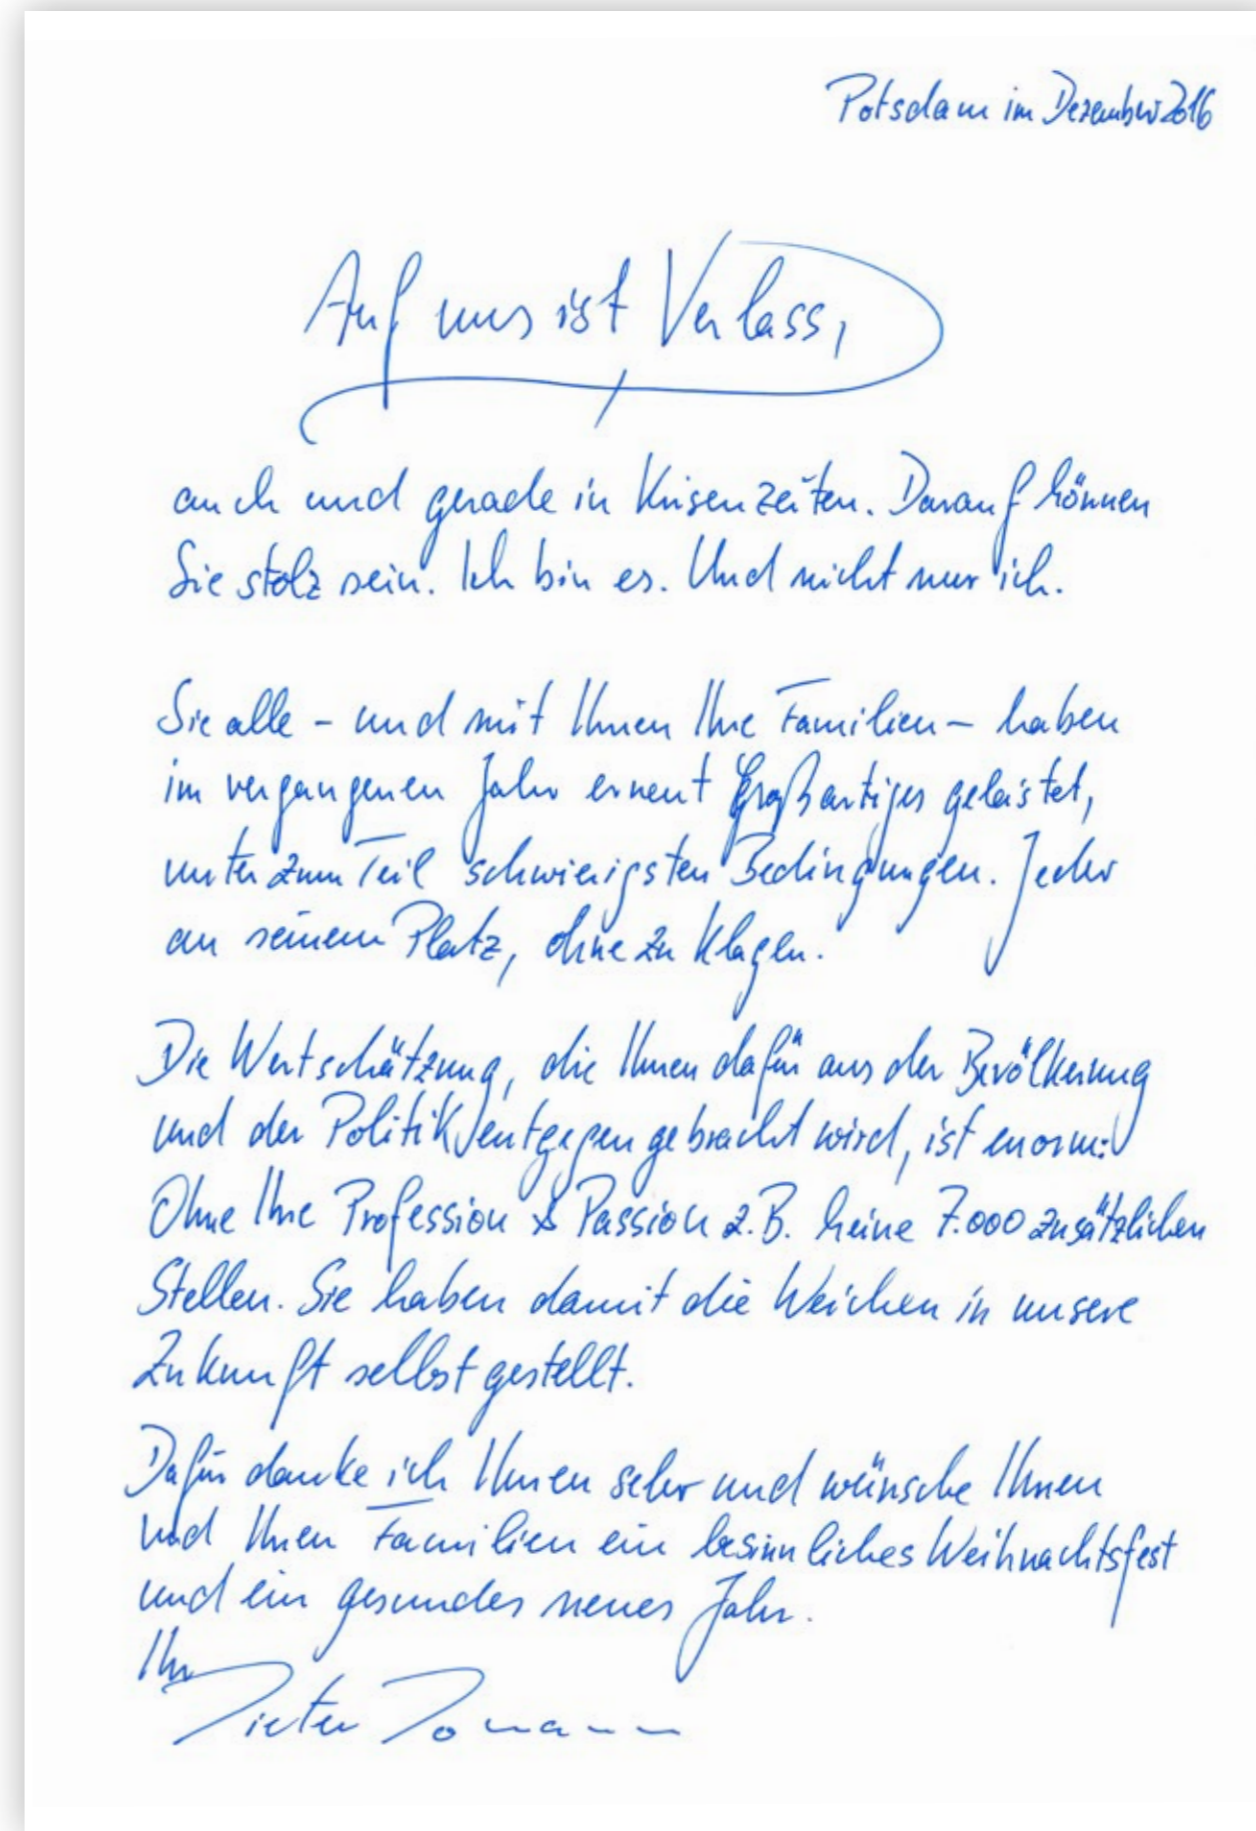 Potsdam im Dezember 2016
Auf uns ist Verlass,
auch und gerade in Krisenzeiten. Darauf können
Sie stolz sein. Ich bin es. Und nicht nur ich.
Sie alle – und mit Ihnen Ihre Familien – haben
im vergangenen Jahr erneut Großartiges geleistet,
unter zum Teil schwierigsten Bedingungen. Jeder
an seinem Platz, ohne zu klagen.
Die Wertschätzung, die Ihnen dafür aus der Bevölkerung
und der Politik entgegengebracht wird, ist enorm:
Ohne Ihre Profession & Passion z.B. keine 7.000 zusätzlichen
Stellen. Sie haben damit die Weichen in unsere
Zukunft selbst gestellt.
Dafür danke ich Ihnen sehr und wünsche Ihnen
und Ihren Familien ein besinnliches Weihnachtsfest
und ein gesundes neues Jahr.
Ihr
Dieter Romann